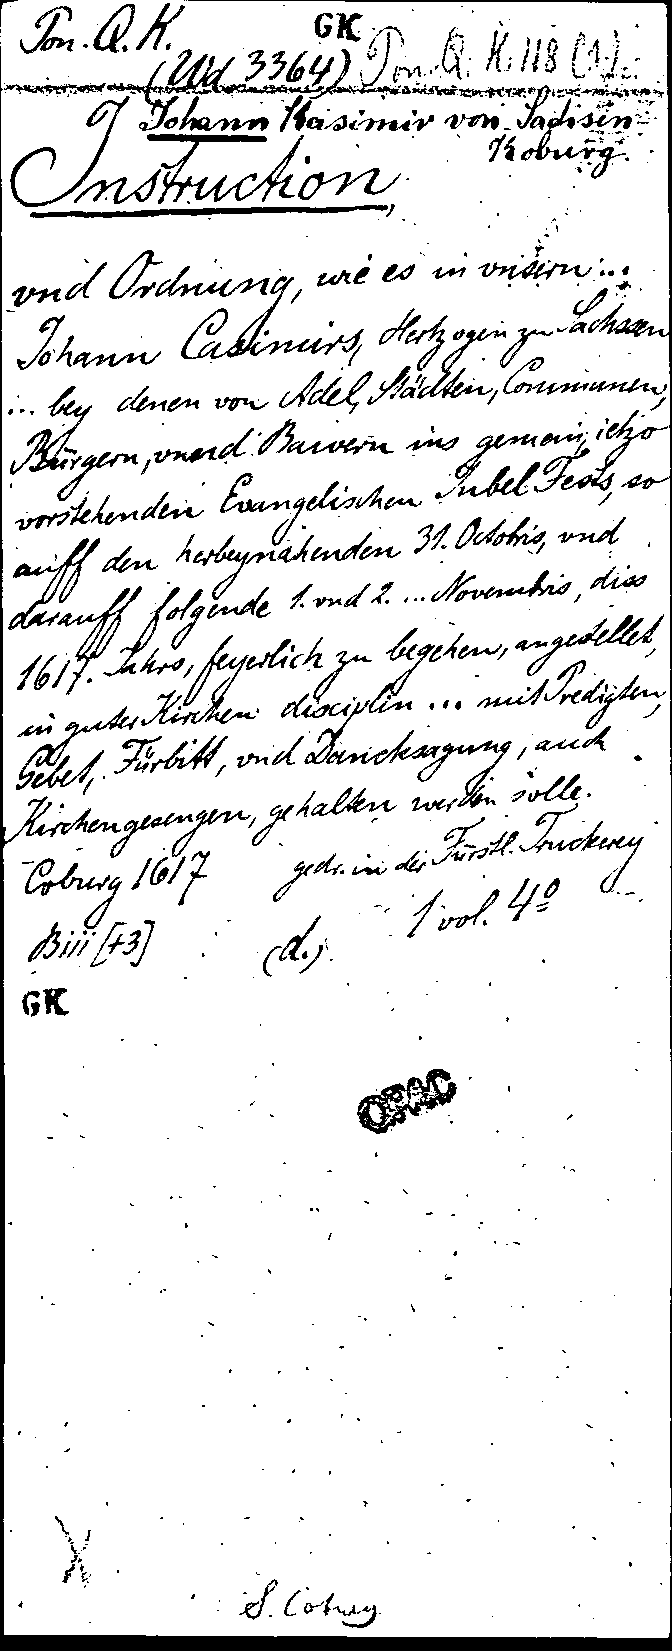 Pon. Q. K.
GK
(Ud 3364) Pon. Q. K. 118 (1)
J Johann Kasimir von Sachsen
Koburg.
Instruction,
vnd Ordnung, wie es in vnsern ...
Johann Casimirs, Hertzogen zu Sachssen
... bey denen von Adel, Städten, Communen,
Bürgern, vnnd Bawern ins gemein, ietzo
vorstehenden Evangelischen Jubel Fests, so
auff den herbeynahenden 31. Octobris, vnd
darauff folgende 1. vnd 2. ... Novembris, diss
1617. Jahrs, feyerlich zu begehen, angestellet,
in guter Kirchen disciplin ... mit Predigten,
Gebet, Fürbitt, vnd Dancksagung, auch
Kirchengesengen, gehalten werden solle.
Coburg 1617 gedr. in der Fürstl. Truckerey
Biii [+3] (d.) 1 vol. 4º
GK
OPAC
S. Coburg